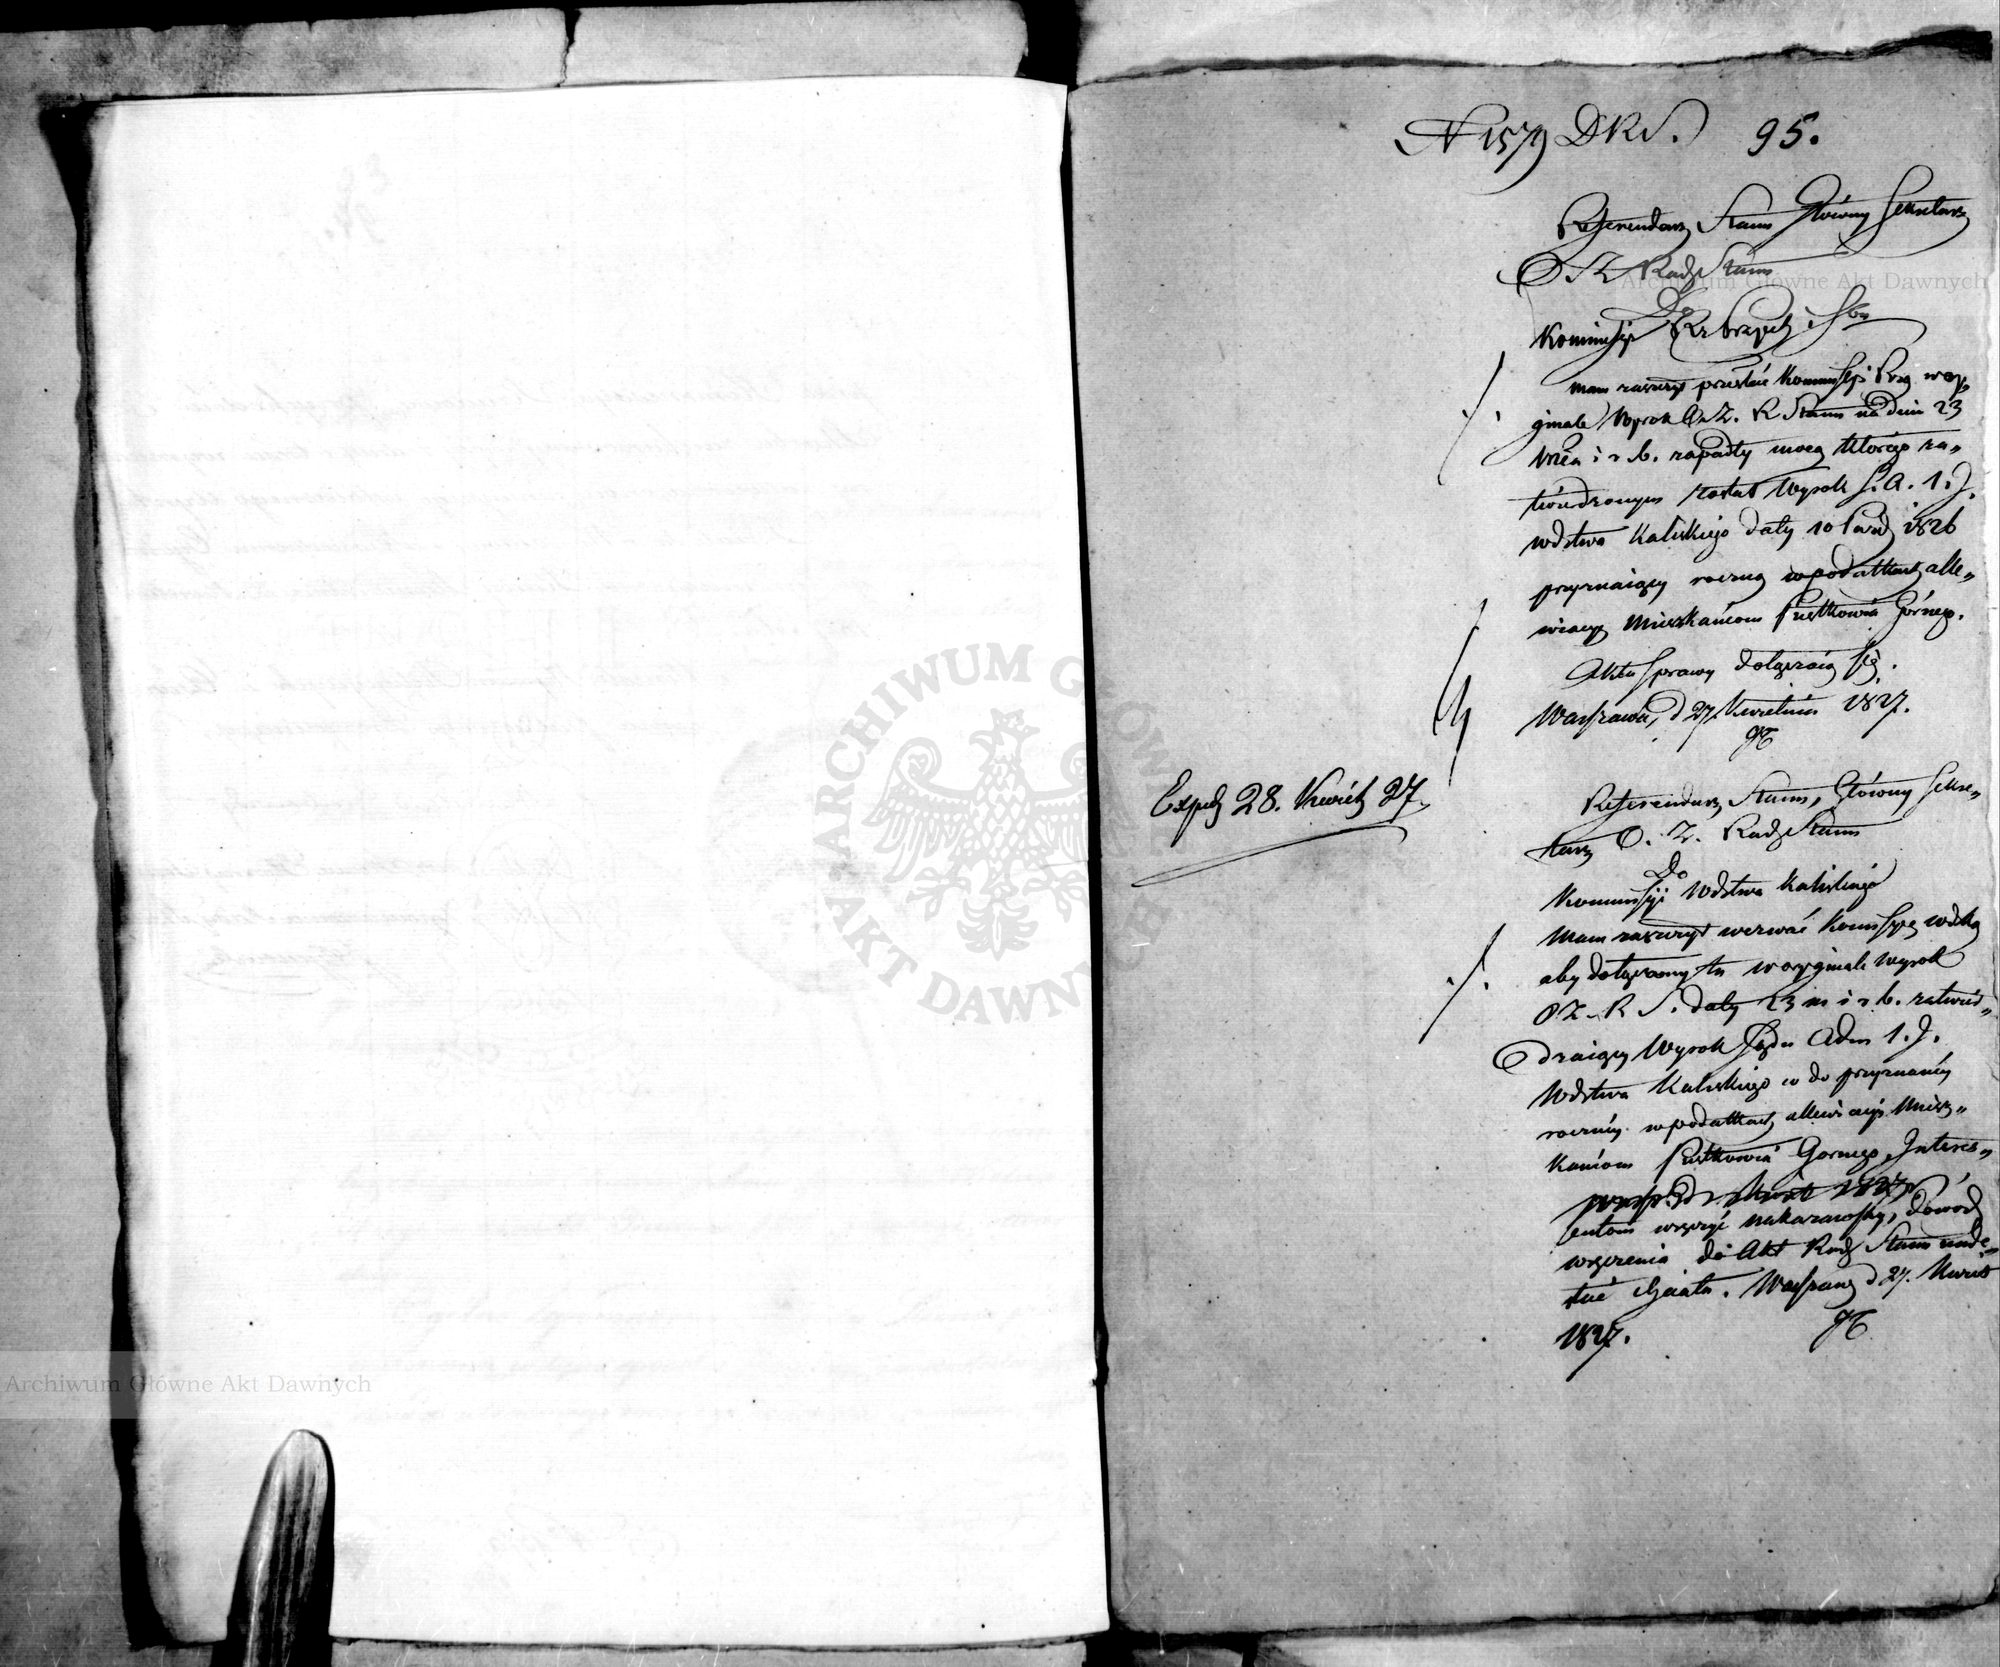 N 1579 DRS. 95.
Referendarz Stanu Główny Sekretarz
O. Z. Rady Stanu
Do
Kommissyi Rz
mam zaszczyt przesłać Kommissyi Rzą w ory„
ginale Wyrok O. Z. R Stanu na dniu 23
b. zapadły mocą którego za„
twierdzonym został Wyrok S. A. 1. J.
wdztwa Kaliskiego daty 10 Paźd 1826
przyznaiący roczną w podatkach alle„
wiacyą Mieszkańcom Pustkowia Górnego.
Akta sprawy dołączaią się.
Warszawa, d 27. Kwietnia 1827.
Exped 28. Kwiet 27.
Referendarz Stanu, Główny Sekre„
tarz O. Z. Rady Stanu
Do
Kommissyi Wdztwa Kaliskiego
Mam zaszczyt wezwać Kommissyą wdzką
aby dołączony tu w oryginale Wyrok
O Z. R S. daty 23 m i r b. zatwier„
dzaiący Wyrok Sądu Adm 1. J.
Wdztwa Kaliskiego co do przyznaney
roczney w podatkach allewiacyi Miesz„
kańcom Pustkowia Gornego, Interes„
sentom wręczyć nakazawszy, dowód
wręczenia do Akt Rady Stanu nade„
słać chciała. Warszawa d 27. Kwiet
1827.
Archiwum Główne Akt Dawnych
ARCHIWUM GŁÓWNE AKT DAWNYCH
Archiwum Główne Akt Dawnych